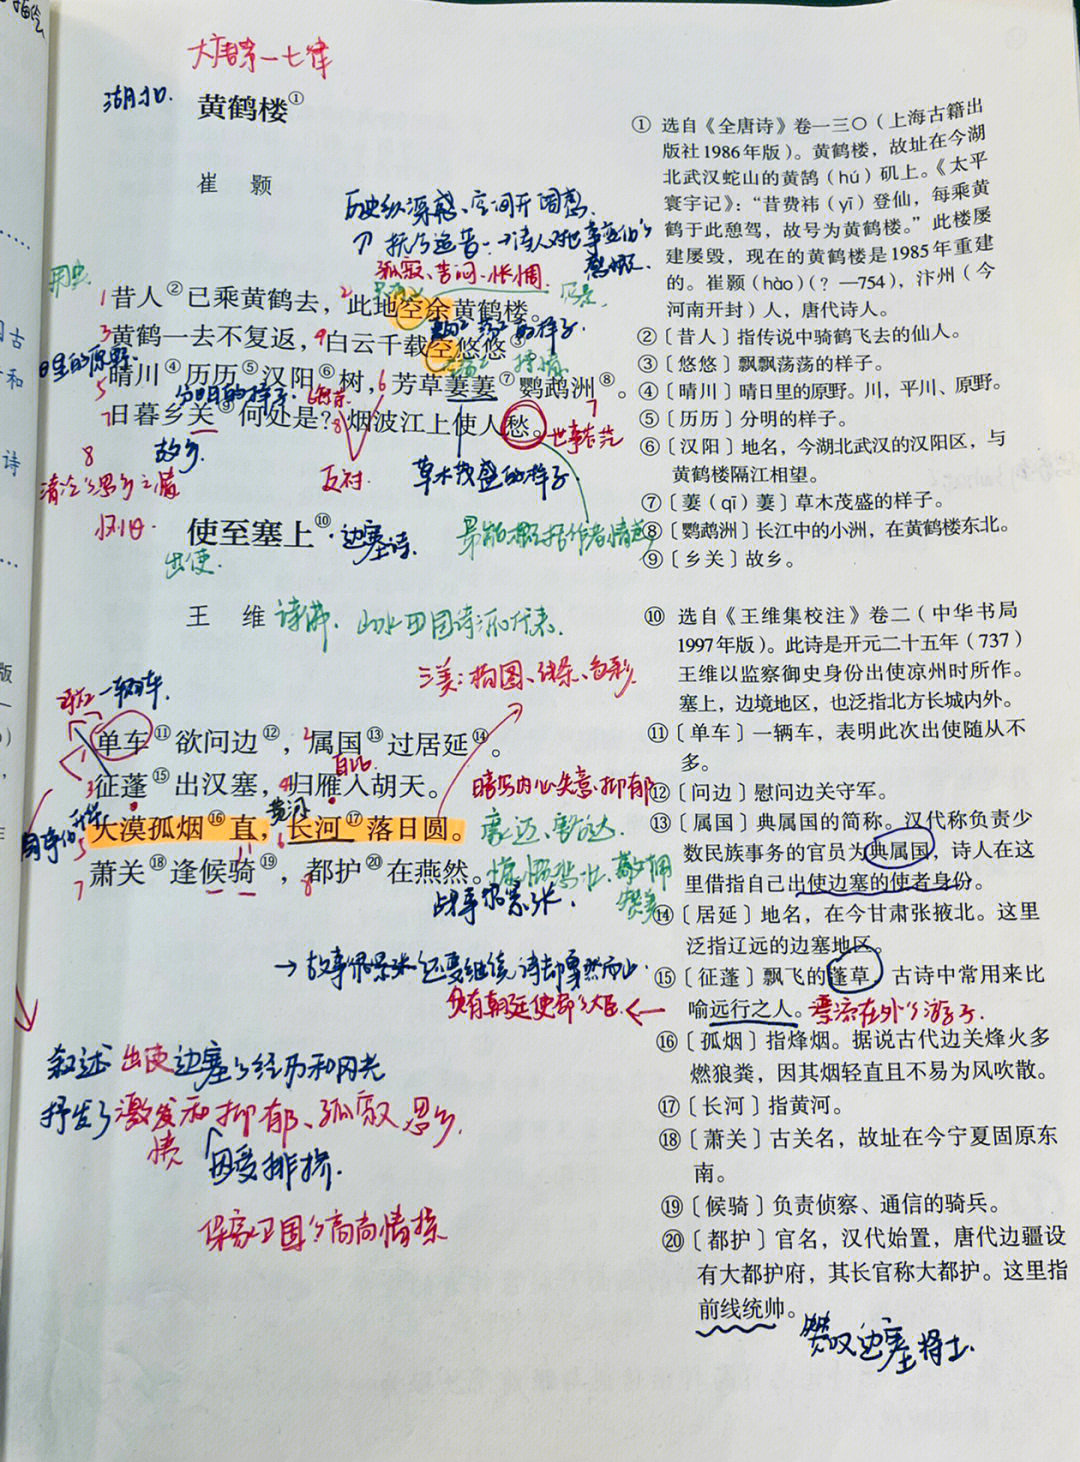 大唐第一七律
湖北.
黄鹤楼①
崔 颢
昔人②已乘黄鹤去，此地空余黄鹤楼。
黄鹤一去不复返，白云千载空悠悠③
晴川④历历⑤汉阳⑥树，芳草萋萋⑦鹦鹉洲⑧。
日暮乡关⑨何处是？烟波江上使人愁。
分明的样子.
故乡.
反衬.
草木茂盛的样子
孤寂、苦闷、怅惘
使至塞上⑩
边塞诗.
出使.
王 维
诗佛. 山水田园诗派代表.
三美：构图、线条、色彩.
一辆车.
单车⑪欲问边⑫，属国⑬过居延⑭。
征蓬⑮出汉塞，归雁入胡天。
自比
黄河
大漠孤烟⑯直，长河⑰落日圆。
萧关⑱逢候骑⑲，都护⑳在燕然。
暗写内心失意、抑郁
豪迈、豁达.
战事很紧张.
叙述出使边塞的经历和风光
抒发了激发和抑郁、孤寂思乡.
情
因受排挤.
保家卫国的高尚情操
① 选自《全唐诗》卷一三〇（上海古籍出
版社1986年版）。黄鹤楼，故址在今湖
北武汉蛇山的黄鹄（hú）矶上。《太平
寰宇记》：“昔费祎（yī）登仙，每乘黄
鹤于此憩驾，故号为黄鹤楼。”此楼屡
建屡毁，现在的黄鹤楼是1985年重建
的。崔颢（hào）（？—754），汴州（今
河南开封）人，唐代诗人。
②〔昔人〕指传说中骑鹤飞去的仙人。
③〔悠悠〕飘飘荡荡的样子。
④〔晴川〕晴日里的原野。川，平川、原野。
⑤〔历历〕分明的样子。
⑥〔汉阳〕地名，今湖北武汉的汉阳区，与
黄鹤楼隔江相望。
⑦〔萋（qī）萋〕草木茂盛的样子。
⑧〔鹦鹉洲〕长江中的小洲，在黄鹤楼东北。
⑨〔乡关〕故乡。
⑩ 选自《王维集校注》卷二（中华书局
1997年版）。此诗是开元二十五年（737）
王维以监察御史身份出使凉州时所作。
塞上，边境地区，也泛指北方长城内外。
⑪〔单车〕一辆车，表明此次出使随从不
多。
⑫〔问边〕慰问边关守军。
⑬〔属国〕典属国的简称。汉代称负责少
数民族事务的官员为典属国，诗人在这
里借指自己出使边塞的使者身份。
⑭〔居延〕地名，在今甘肃张掖北。这里
泛指辽远的边塞地区。
⑮〔征蓬〕飘飞的蓬草，古诗中常用来比
喻远行之人。
漂流在外的游子.
⑯〔孤烟〕指烽烟。据说古代边关烽火多
燃狼粪，因其烟轻直且不易为风吹散。
⑰〔长河〕指黄河。
⑱〔萧关〕古关名，故址在今宁夏固原东
南。
⑲〔候骑〕负责侦察、通信的骑兵。
⑳〔都护〕官名，汉代始置，唐代边疆设
有大都护府，其长官称大都护。这里指
前线统帅。
赞叹边塞将士.